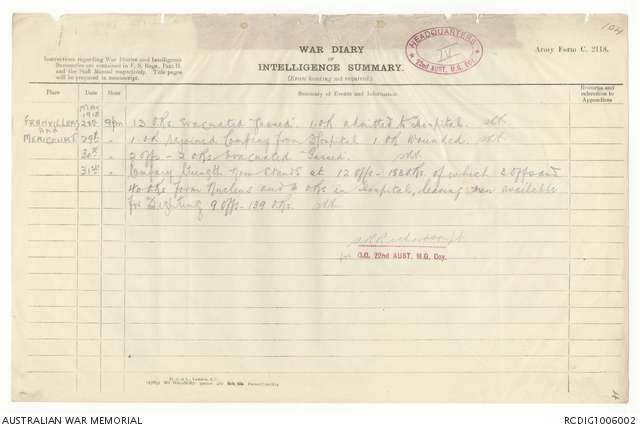 104
WAR DIARY
OF
INTELLIGENCE SUMMARY.
(Erase heading not required.)
HEADQUARTERS
22ND AUST. M.G. Coy.
Army Form C. 2118.
Instructions regarding War Diaries and Intelligence
Summaries are contained in F. S. Regs., Part II.
and the Staff Manual respectively. Title pages
will be prepared in manuscript.
Place Date Hour Summary of Events and Information Remarks and
references to
Appendices
MAY
1918
FRANVILLERS 28th 9pm 13 ORs. Evacuated "Gassed". 1 OR admitted to Hospital.
and
MERICOURT 29th " 1 OR rejoined Company from Hospital 1 OR Wounded.
30th " 2 Offs - 2 ORs Evacuated "Gassed".
31st " Company Strength now Stands at 12 Offs - 183 ORs. of which 3 Offs and
40 ORs form Nucleus and 4 ORs in hospital, leaving men available
for Fighting 9 Offs - 139 ORs.
for O.C. 22ND AUST. M.G. Coy.
AUSTRALIAN WAR MEMORIAL
RCDIG1006002